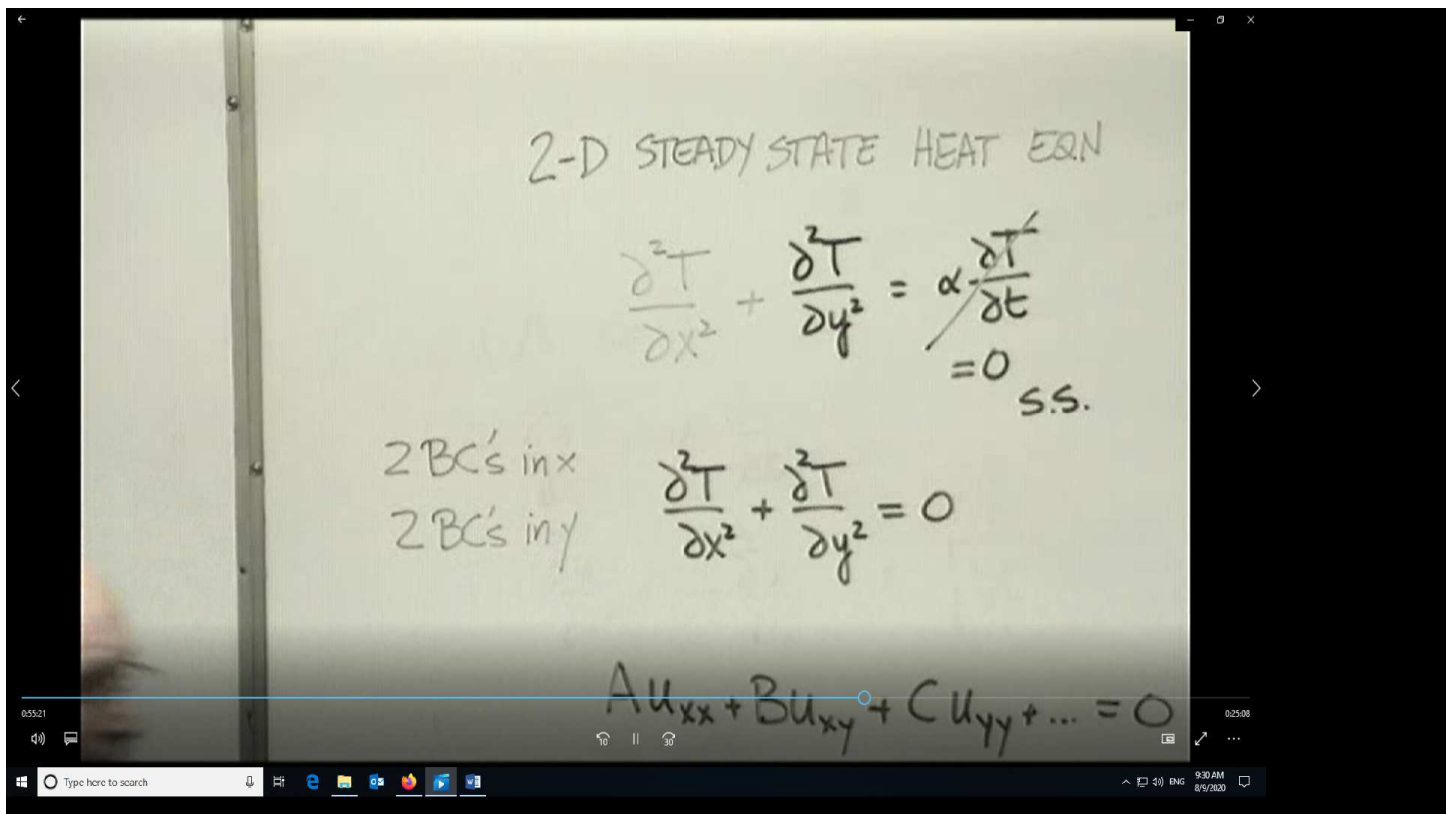 2-D STEADY STATE HEAT EQN
∂²T/∂x² + ∂²T/∂y² = α ∂T/∂t
=0
S.S.
2 BC's in x
2 BC's in y
∂²T/∂x² + ∂²T/∂y² = 0
Au_xx + Bu_xy + Cu_yy + ... = 0
0:55:21
0:25:08
10
30
Type here to search
ENG
9:30 AM
8/9/2020